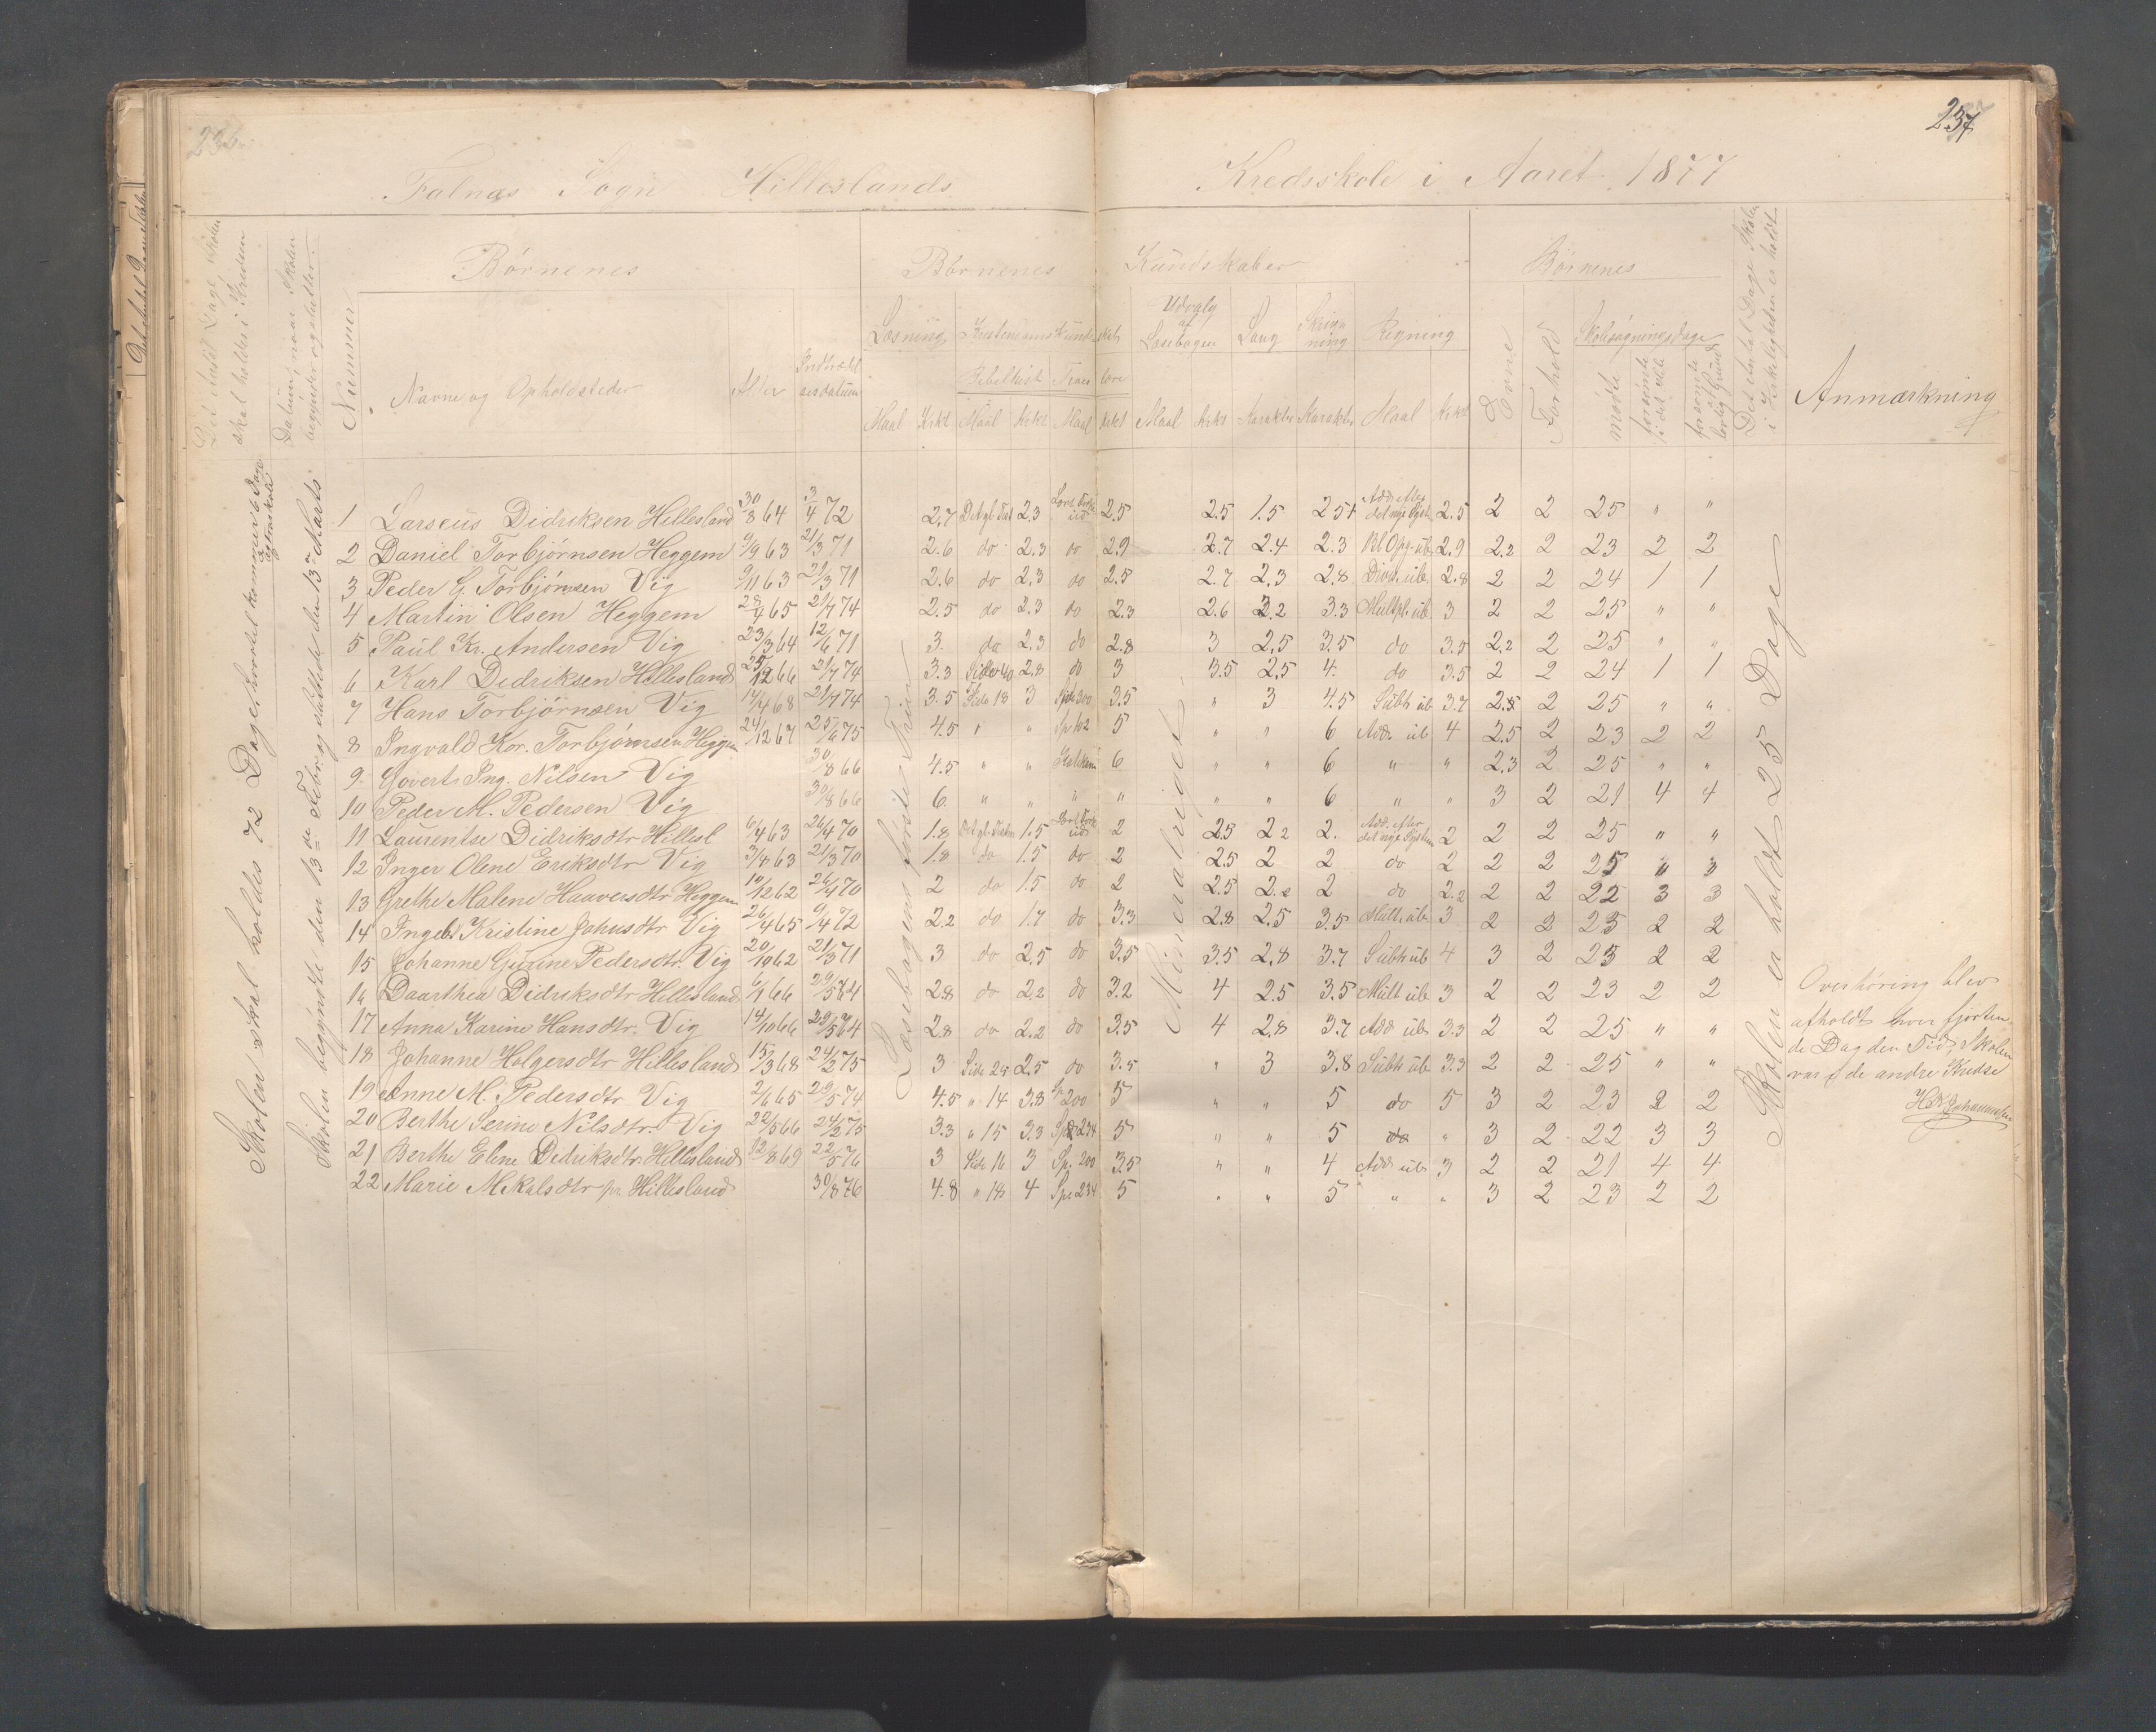 236
237
Falnæs Sogn Hilleslands Kredsskole i Aaret 1877
Det Antal Dage Skolen skal holdes i Kredsen
Datum, naar Skolen begynder og slutter.
Nummer
Børnenes
Navne og Opholdssteder
Alder
Indtrædelsesdatum
Børnenes Kundskaber
Læsning
Kristendomskundskab
Bibelhist
Troeslære
Udvalg af Læsebogen
Sang
Skrivning
Regning
Maal Krkt Maal Krkt Maal Krkt Maal Krkt Karakter Karakter Maal Krkt
Børnenes
Evne
Forhold
Skolesøgningsdage
mødte
forsømte i det Hele
forsømte af lovlig Grund
Det Antal Dage Skolen i Virkeligheden er holdt
Anmærkning
Skolen skal holdes 72 Dage, hvortil kommer 6 Dage
Skolen begyndte den 13de Febr. og sluttede den 13de Marts
Læsebogens første Trin
Mineralriget
Skolen er holdt 25 Dage
1 Larseus Didriksen Hillesland 30/8 64 3/4 72 2,7 Det gl. Test 2,3 2.5 2.5 1.5 2.5+ Add. efter det nye Syst. 2.5 2 2 25 " "
2 Daniel Torbjørnsen Heggem 9/9 63 21/3 71 2.6 do 2.3 do 2.9 2.7 2.4 2.3 2.9 2.2 2 23 2 2
3 Peder G. Torbjørnsen Vig 9/11 63 21/3 71 2.6 do 2.3 do 2.5 2.7 2.3 2.8 Divis. üb. 2.8 2 2 24 1 1
4 Martin Olsen Heggem 28/4 65 21/7 74 2.5 do 2.3 do 2.3 2.6 2.2 3.3 Multpl. üb. 3 2 2 25 " "
5 Paul Kr. Andersen Vig 23/3 64 12/6 71 3. do 2.3 do 2.8 3 2.5 3.5 do 3.5 2.2 2 25 " "
6 Karl Didriksen Hillesland 25/12 66 21/7 74 3.3 Side 40 2.8 do 3 3.5 2.5 4. do 3.5 2 2 24 1 1
7 Hans Torbjørnsen Vig 14/4 68 21/7 74 3.5 Side 18 3 Sp. 300 3.5 " 3 4.5 Subtr üb 3.7 2.5 2 25 " "
8 Ingvald Kor. Torbjørnsen Heggem 24/12 67 25/6 75 4.5 " " Sp 102 5 " " 6 Add. üb 4 2.5 2 23 2 2
9. Govert Ing. Nilsen Vig 30/8 66 4.5 " " 6 " " 6 " " 2.3 2 25 " "
10 Peder M. Pedersen Vig 30/8 66 6. " " " " " " 6 " " 3 2 21 4 4
11 Laurentse Didriksdtr Hillesl 6/4 63 26/4 70 1.8 Det gl. Testm 1.5 2 2.5 2 2 2. Add. efter det nye System 2 2 2 25 " "
12 Inger Olene Eriksdtr Vig 3/4 63 21/3 70 1.8 do 1.5 do 2 2.5 2 2 do 2 2 2 25 " "
13 Grethe Malene Haaversdtr Heggem 10/12 62 26/4 70 2 do 1.5 do 2 2.5 2.2 2 do 2.2 2 2 22 3 3
14 Ingeb. Kristine Johnsdtr Vig 26/4 65 9/4 72 2.2 do 1.7 do 3.3 2.8 2.5 3.5 Mult. üb 3 2 2 23 2 2
15 Johanne Gurine Pedersdtr. Vig 20/10 62 21/3 71 3 do 2.5 do 3.5 3.5 2.8 3.7 Subtr üb 4 3 2 23 2 2
16 Daarthea Didriksdtr Hillesland 6/1 66 29/5 64 2.8 do 2.2 do 3.2 4 2.5 3.5 Mult üb 3 2 2 23 2 2
17 Anna Karine Hansdtr. Vig 14/10 66 29/5 64 2.8 do 2.2 do 3.5 4 2.8 3.7 Add üb 3.3 2 2 25 " "
18 Johanne Holgersdtr Hillesland 15/3 68 24/2 75 3 Side 25 2.5 do 3.5 " 3 3.8 Subtr üb. 3.3 2 2 25 " "
19 Anne M. Pedersdtr Vig 2/6 65 29/5 74 4.5 " 14 3.8 Sp 200 5 " " 5 do 5 3 2 23 2 2
20 Berthe Serine Nilsdtr. Vig 22/5 66 24/2 75 3.3 " 15 3.3 Sp 234 5 " " 5 do " 3 2 22 3 3
21 Berthe Elene Didriksdtr Hillesland 12/8 69 22/5 76 3 Side 16 3 Sp. 200 3.5 " " 4 Add üb 3 2 2 21 4 4
22 Marie Mikalsdtr pa Hillesland 30/8 76 4.8 " 18 4 Sp 234 5 " " 5 " " 3 2 23 2 2
Overhøring blev
afholdt hver fjorten-
de Dag den Tid Skolen
var i de andre Kredse
H. Johannesen